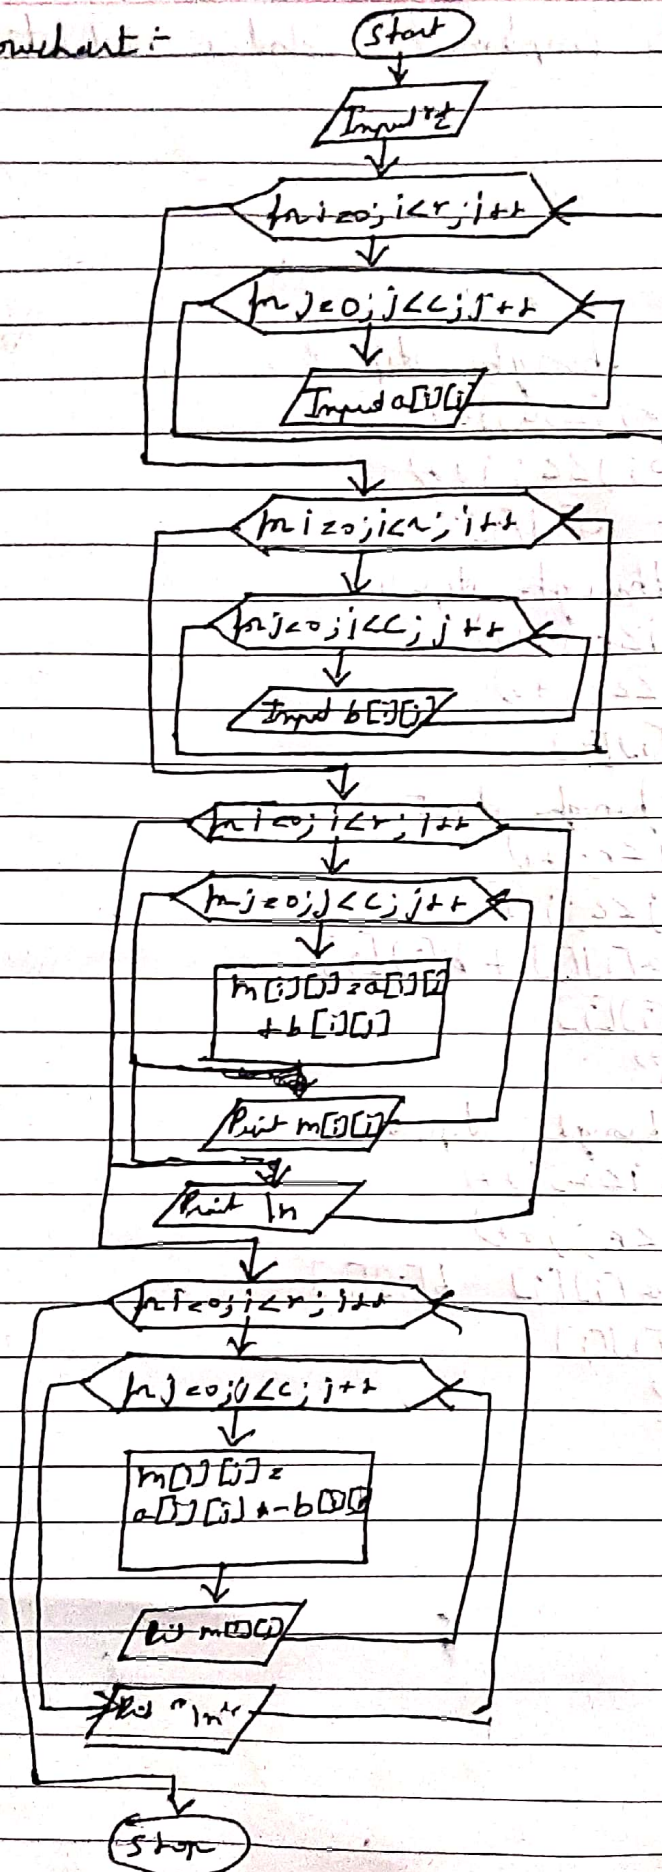 owchart :-
Start
Input r,c
for i=0; i<r; i++
for j=0; j<c; j++
Input a[i][j]
for i=0; i<r; i++
for j=0; j<c; j++
Input b[i][j]
for i=0; i<r; i++
for j=0; j<c; j++
m[i][j]=a[i][j]
+b[i][j]
Print m[i][j]
Print \n
for i=0; i<r; i++
for j=0; j<c; j++
m[i][j]=
a[i][j]-b[i][j]
Print m[i][j]
Print "\n"
Stop